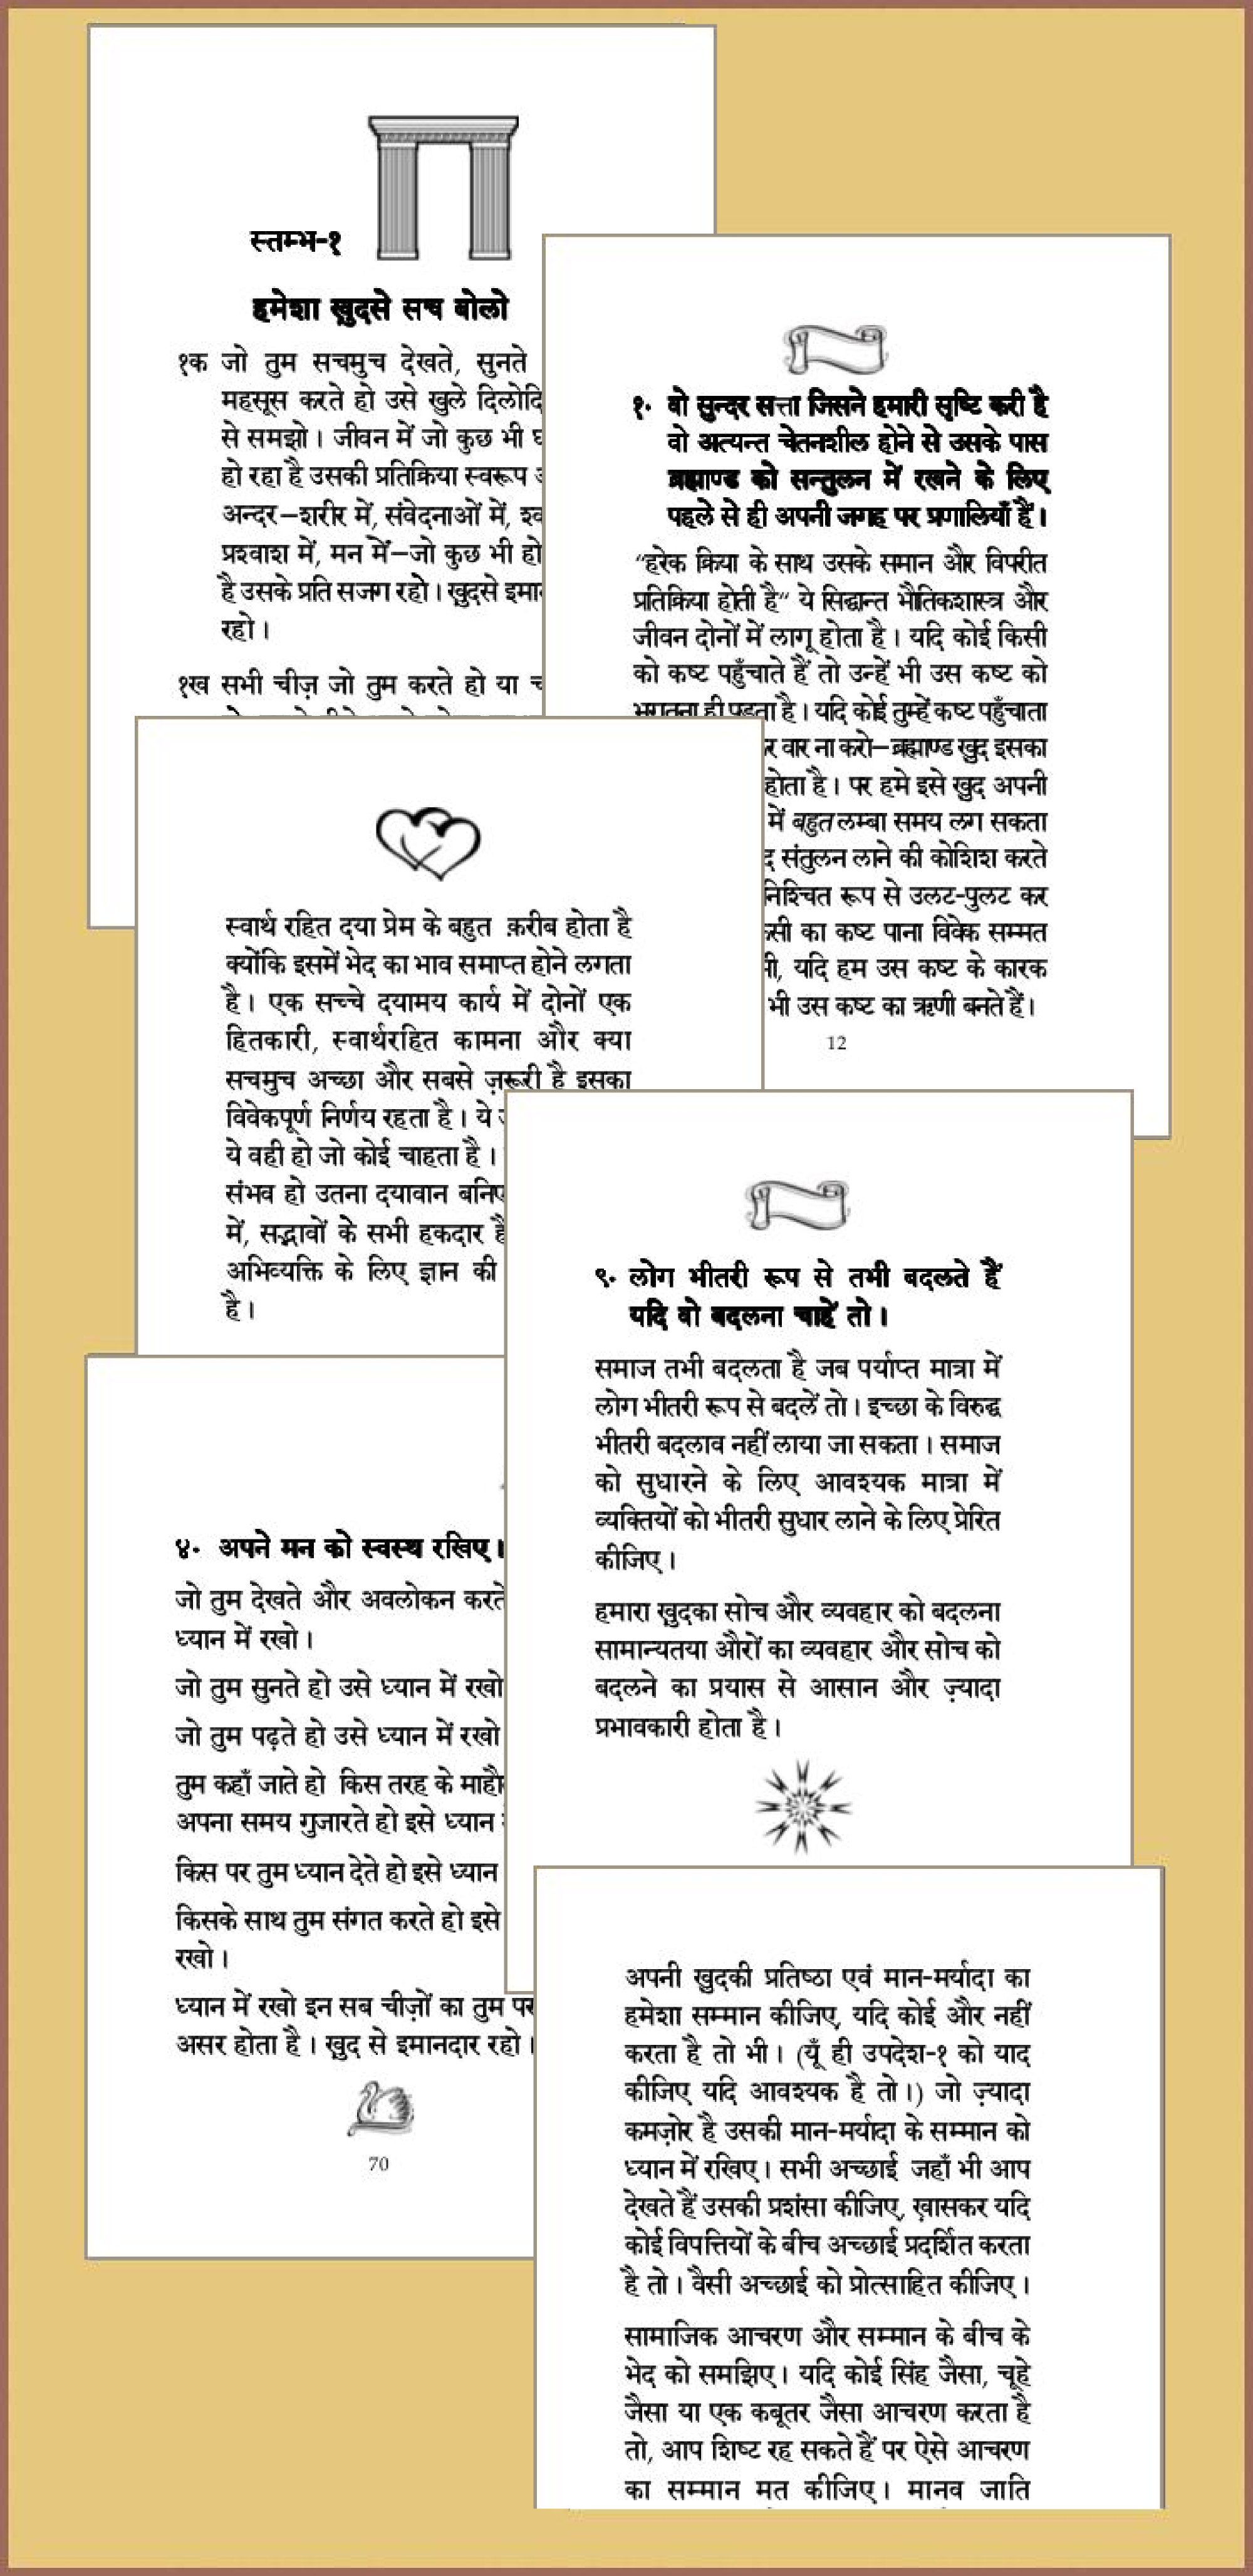 स्तम्भ-१
हमेशा खुदसे सच बोलो
१क जो तुम सचमुच देखते, सुनते
महसूस करते हो उसे खुले
से समझो। जीवन में जो कुछ भी
हो रहा है उसकी प्रतिक्रिया स्वरूप
अन्दर–शरीर में, संवेदनाओं में,
प्रश्वाश में, मन में–जो कुछ भी हो
है उसके प्रति सजग रहो। खुदसे
रहो।
१ख सभी चीज़ जो तुम करते हो या
१. वो सुन्दर सत्ता जिसने हमारी सृष्टि करी है
वो अत्यन्त चेतनशील होने से उसके पास
ब्रह्माण्ड को सन्तुलन में रखने के लिए
पहले से ही अपनी जगह पर प्रणालियाँ हैं।
“हरेक क्रिया के साथ उसके समान और विपरीत
प्रतिक्रिया होती है“ ये सिद्धान्त भौतिकशास्त्र और
जीवन दोनों में लागू होता है। यदि कोई किसी
को कष्ट पहुँचाते हैं तो उन्हें भी उस कष्ट को
भुगतना ही पड़ता है। यदि कोई तुम्हें कष्ट पहुँचाता
वार ना करो–ब्रह्माण्ड खुद इसका
होता है। पर हमे इसे खुद अपनी
में बहुत लम्बा समय लग सकता
संतुलन लाने की कोशिश करते
निश्चित रूप से उलट-पुलट कर
का कष्ट पाना विवेक सम्मत
यदि हम उस कष्ट के कारक
भी उस कष्ट का ऋणी बनते हैं।
12
स्वार्थ रहित दया प्रेम के बहुत क़रीब होता है
क्योंकि इसमें भेद का भाव समाप्त होने लगता
है। एक सच्चे दयामय कार्य में दोनों एक
हितकारी, स्वार्थरहित कामना और क्या
सचमुच अच्छा और सबसे ज़रूरी है इसका
विवेकपूर्ण निर्णय रहता है। ये
ये वही हो जो कोई चाहता है।
संभव हो उतना दयावान बनिए
में, सद्भावों के सभी हकदार
अभिव्यक्ति के लिए ज्ञान की
है।
९. लोग भीतरी रूप से तभी बदलते हैं
यदि वो बदलना चाहें तो।
समाज तभी बदलता है जब पर्याप्त मात्रा में
लोग भीतरी रूप से बदलें तो। इच्छा के विरुद्ध
भीतरी बदलाव नहीं लाया जा सकता। समाज
को सुधारने के लिए आवश्यक मात्रा में
व्यक्तियों को भीतरी सुधार लाने के लिए प्रेरित
कीजिए।
हमारा खुदका सोच और व्यवहार को बदलना
सामान्यतया औरों का व्यवहार और सोच को
बदलने का प्रयास से आसान और ज़्यादा
प्रभावकारी होता है।
४. अपने मन को स्वस्थ रखिए।
जो तुम देखते और अवलोकन करते
ध्यान में रखो।
जो तुम सुनते हो उसे ध्यान में रखो
जो तुम पढ़ते हो उसे ध्यान में रखो
तुम कहाँ जाते हो किस तरह के
अपना समय गुजारते हो इसे ध्यान
किस पर तुम ध्यान देते हो इसे ध्यान
किसके साथ तुम संगत करते हो इसे
रखो।
ध्यान में रखो इन सब चीज़ों का तुम पर
असर होता है। खुद से इमानदार रहो।
70
अपनी खुदकी प्रतिष्ठा एवं मान-मर्यादा का
हमेशा सम्मान कीजिए, यदि कोई और नहीं
करता है तो भी। (यूँ ही उपदेश-१ को याद
कीजिए यदि आवश्यक है तो।) जो ज़्यादा
कमज़ोर है उसकी मान-मर्यादा के सम्मान को
ध्यान में रखिए। सभी अच्छाई जहाँ भी आप
देखते हैं उसकी प्रशंसा कीजिए, ख़ासकर यदि
कोई विपत्तियों के बीच अच्छाई प्रदर्शित करता
है तो। वैसी अच्छाई को प्रोत्साहित कीजिए।
सामाजिक आचरण और सम्मान के बीच के
भेद को समझिए। यदि कोई सिंह जैसा, चूहे
जैसा या एक कबूतर जैसा आचरण करता है
तो, आप शिष्ट रह सकते हैं पर ऐसे आचरण
का सम्मान मत कीजिए। मानव जाति